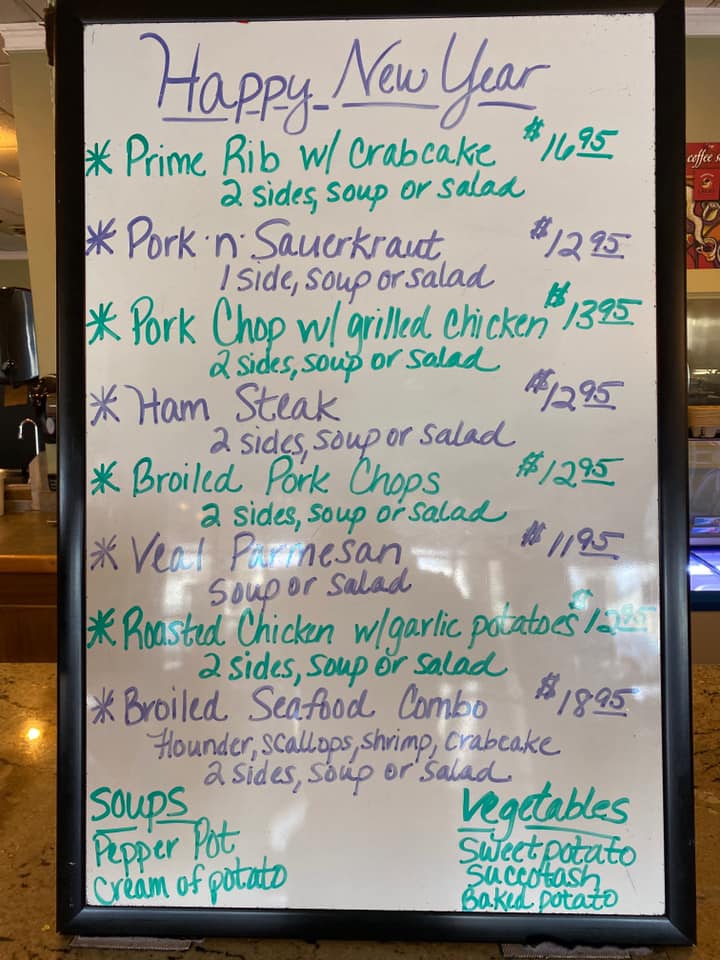 Happy New Year
* Prime Rib w/ Crabcake $16.95
2 sides, soup or salad
* Pork 'n' Sauerkraut $12.95
1 side, soup or salad
* Pork Chop w/ grilled chicken $13.95
2 sides, soup or salad
* Ham Steak $12.95
2 sides, soup or salad
* Broiled Pork Chops $12.95
2 sides, soup or salad
* Veal Parmesan $11.95
Soup or Salad
* Roasted Chicken w/garlic potatoes $12.95
2 sides, soup or salad
* Broiled Seafood Combo $18.95
flounder, scallops, shrimp, crabcake
2 sides, soup or salad
Soups
Pepper Pot
Cream of potato
Vegetables
Sweet potato
Succotash
Baked potato
coffee